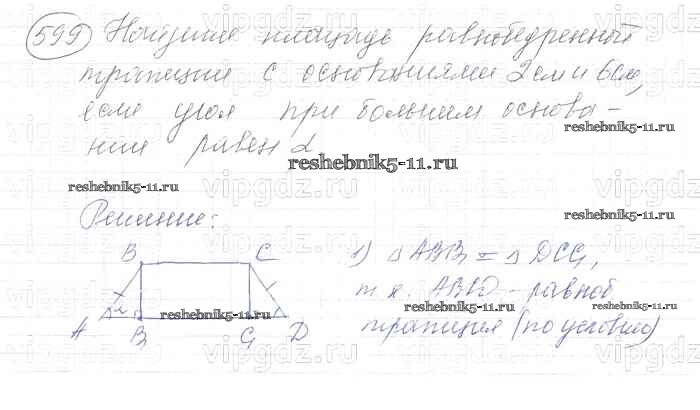 599 Найдите площадь равнобедренной
трапеции с основаниями 2см и 6см,
если угол при большем основа-
нии равен α
reshebnik5-11.ru
reshebnik5-11.ru
reshebnik5-11.ru
Решение:
reshebnik5-11.ru
B C
1) △ABB₁ = △DCC₁,
т.к. ABCD - равноб
reshebnik5-11.ru
reshebnik5-11.ru
reshebnik5-11.ru
трапеция (по условию)
A α B₁ C₁ D
vipgdz.ru